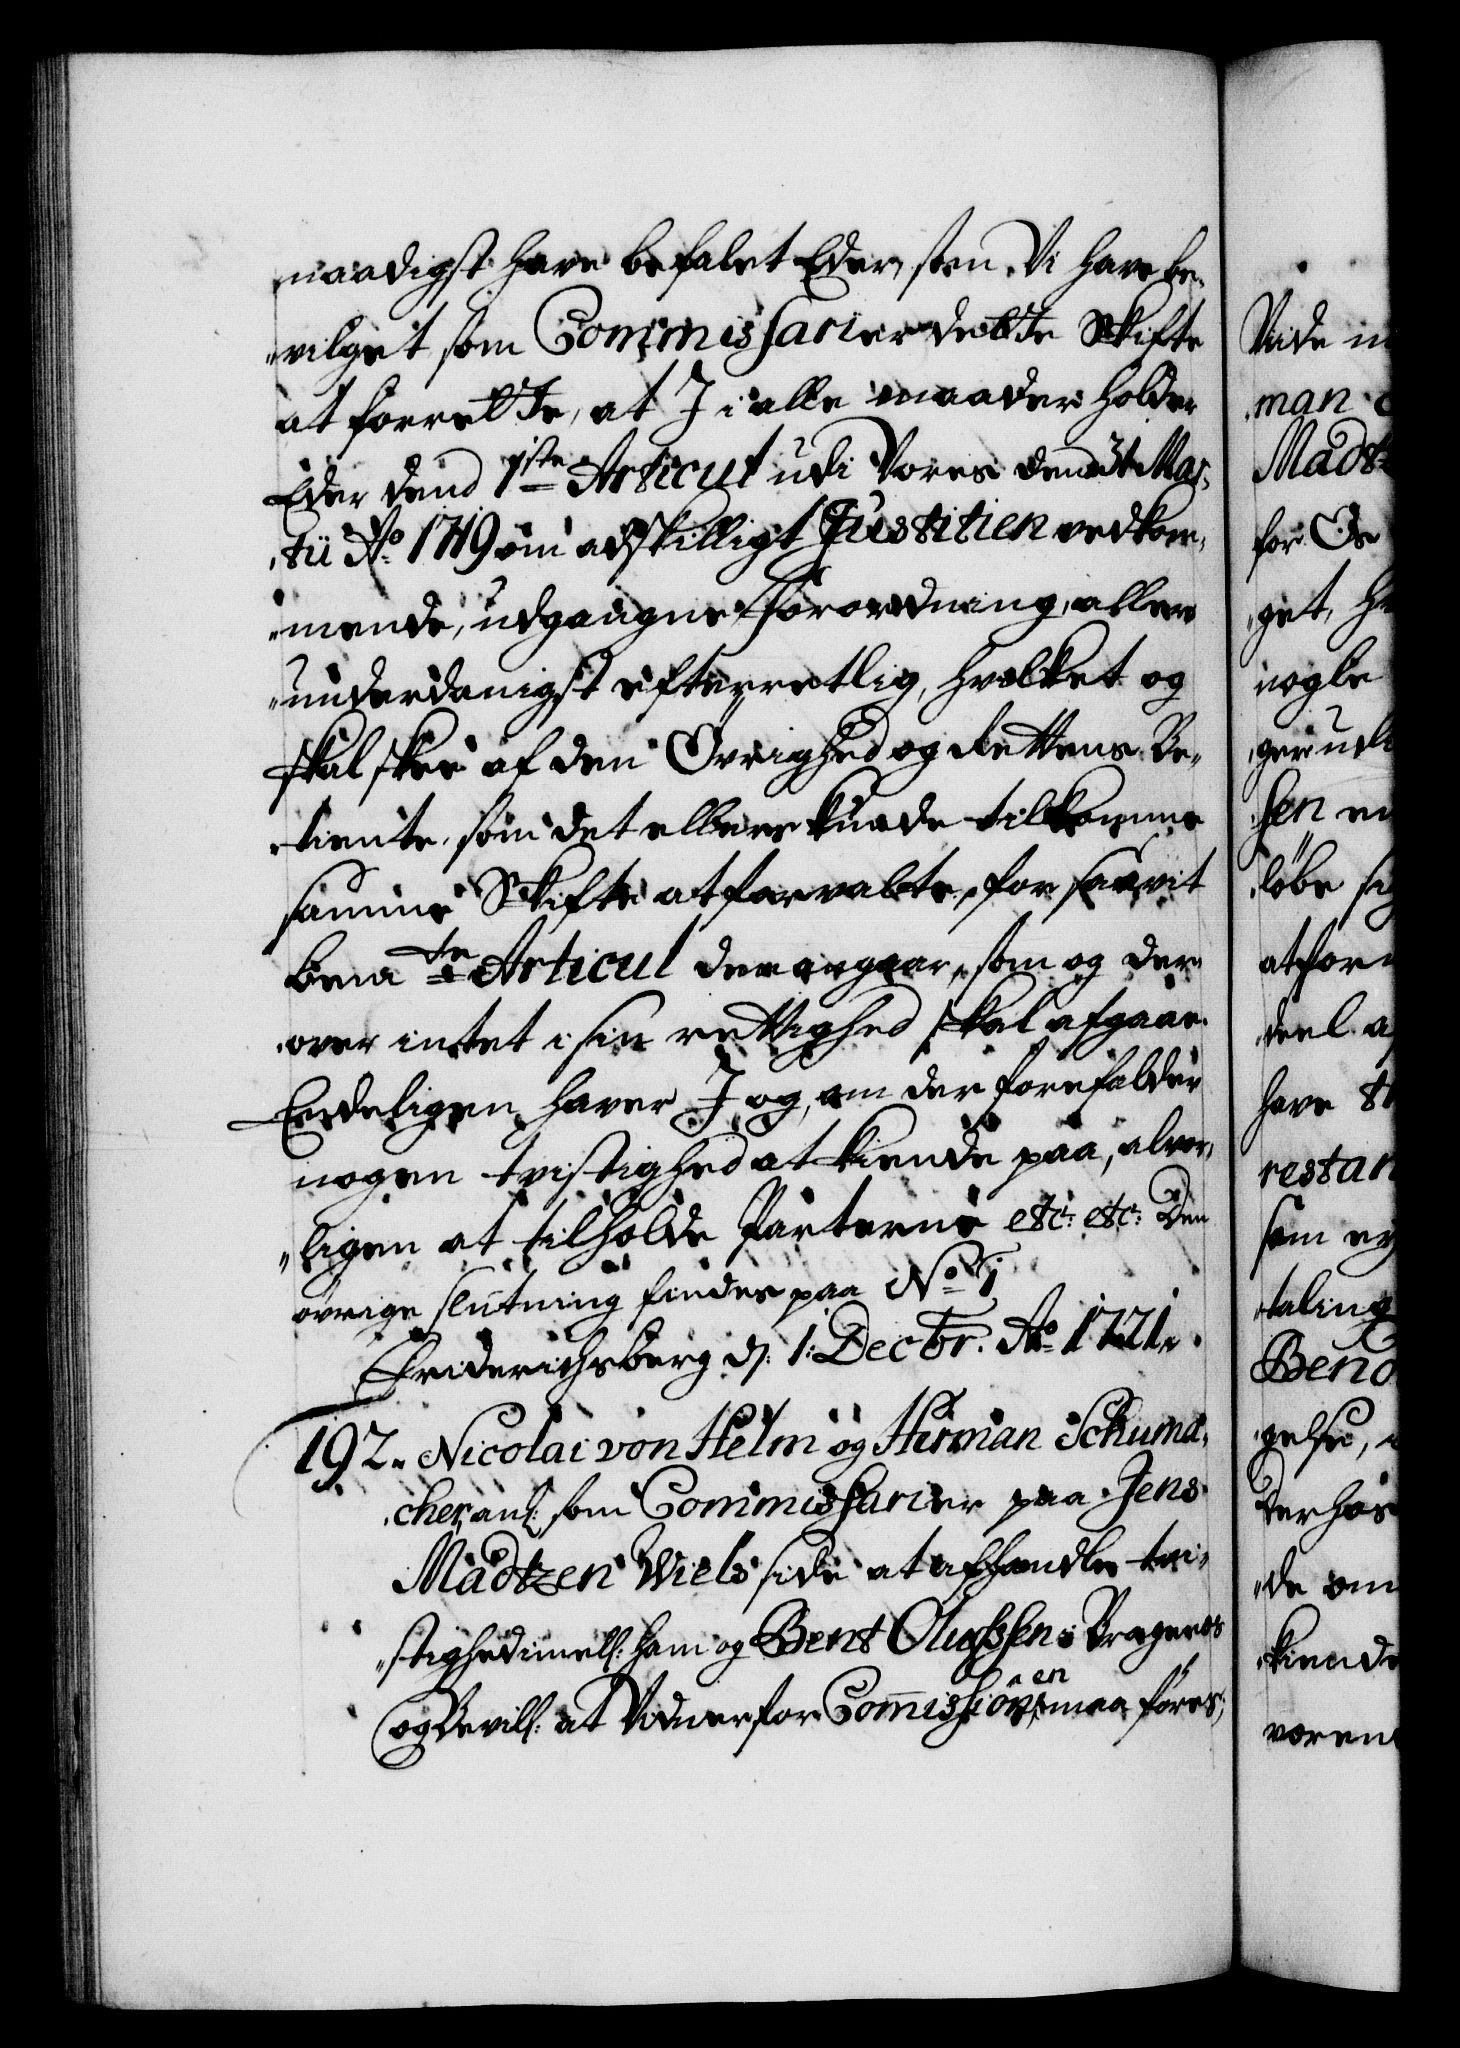 naadigst have befalet Eder, som Vi have be-
vilget som Commissarier dette Skifte
at forrette, at I i alle maader holder
Eder dend 1ste Articul udi Vores dend 31 Mar-
tii Ao 1719 om adskilligt Justitien vedkom-
mende, udgangne Forordning, aller
underdanigst efterretlig, hvilket og
skal skee af den Øvrighed og Rettens Be-
tiente, som det ellers kunde tilkomme
samme Skifte at forvalte, for saavit
bema te Articul dem angaar, som og der-
over intet i sin rettighed skal afgaae.
Endeligen haver I og, om der forefalder
nogen tvistighed at kiende paa, alvor-
ligen at tilholde Parterne etc: etc: Den
øvrige slutning findes paa No 1
Friderichsberg d: 1: Decbr. Ao 1721.
192. Nicolai von Helm og Herman Schuma-
cher, anl: som Commissarier paa Jens
Madtzen Wiels side at afhandle tvi-
stighed imell: ham og Bent Olufssen i Bragenes
og Bevill: at Vidner for Commissionen maa føres,
Vide in
man
Madtz
for Os
get, he
nogle
ger udi
sen
løbe sig
at for
deel a
have
restan
som er
taling
Bend
gelse,
Derhos
de om
kiende
voren